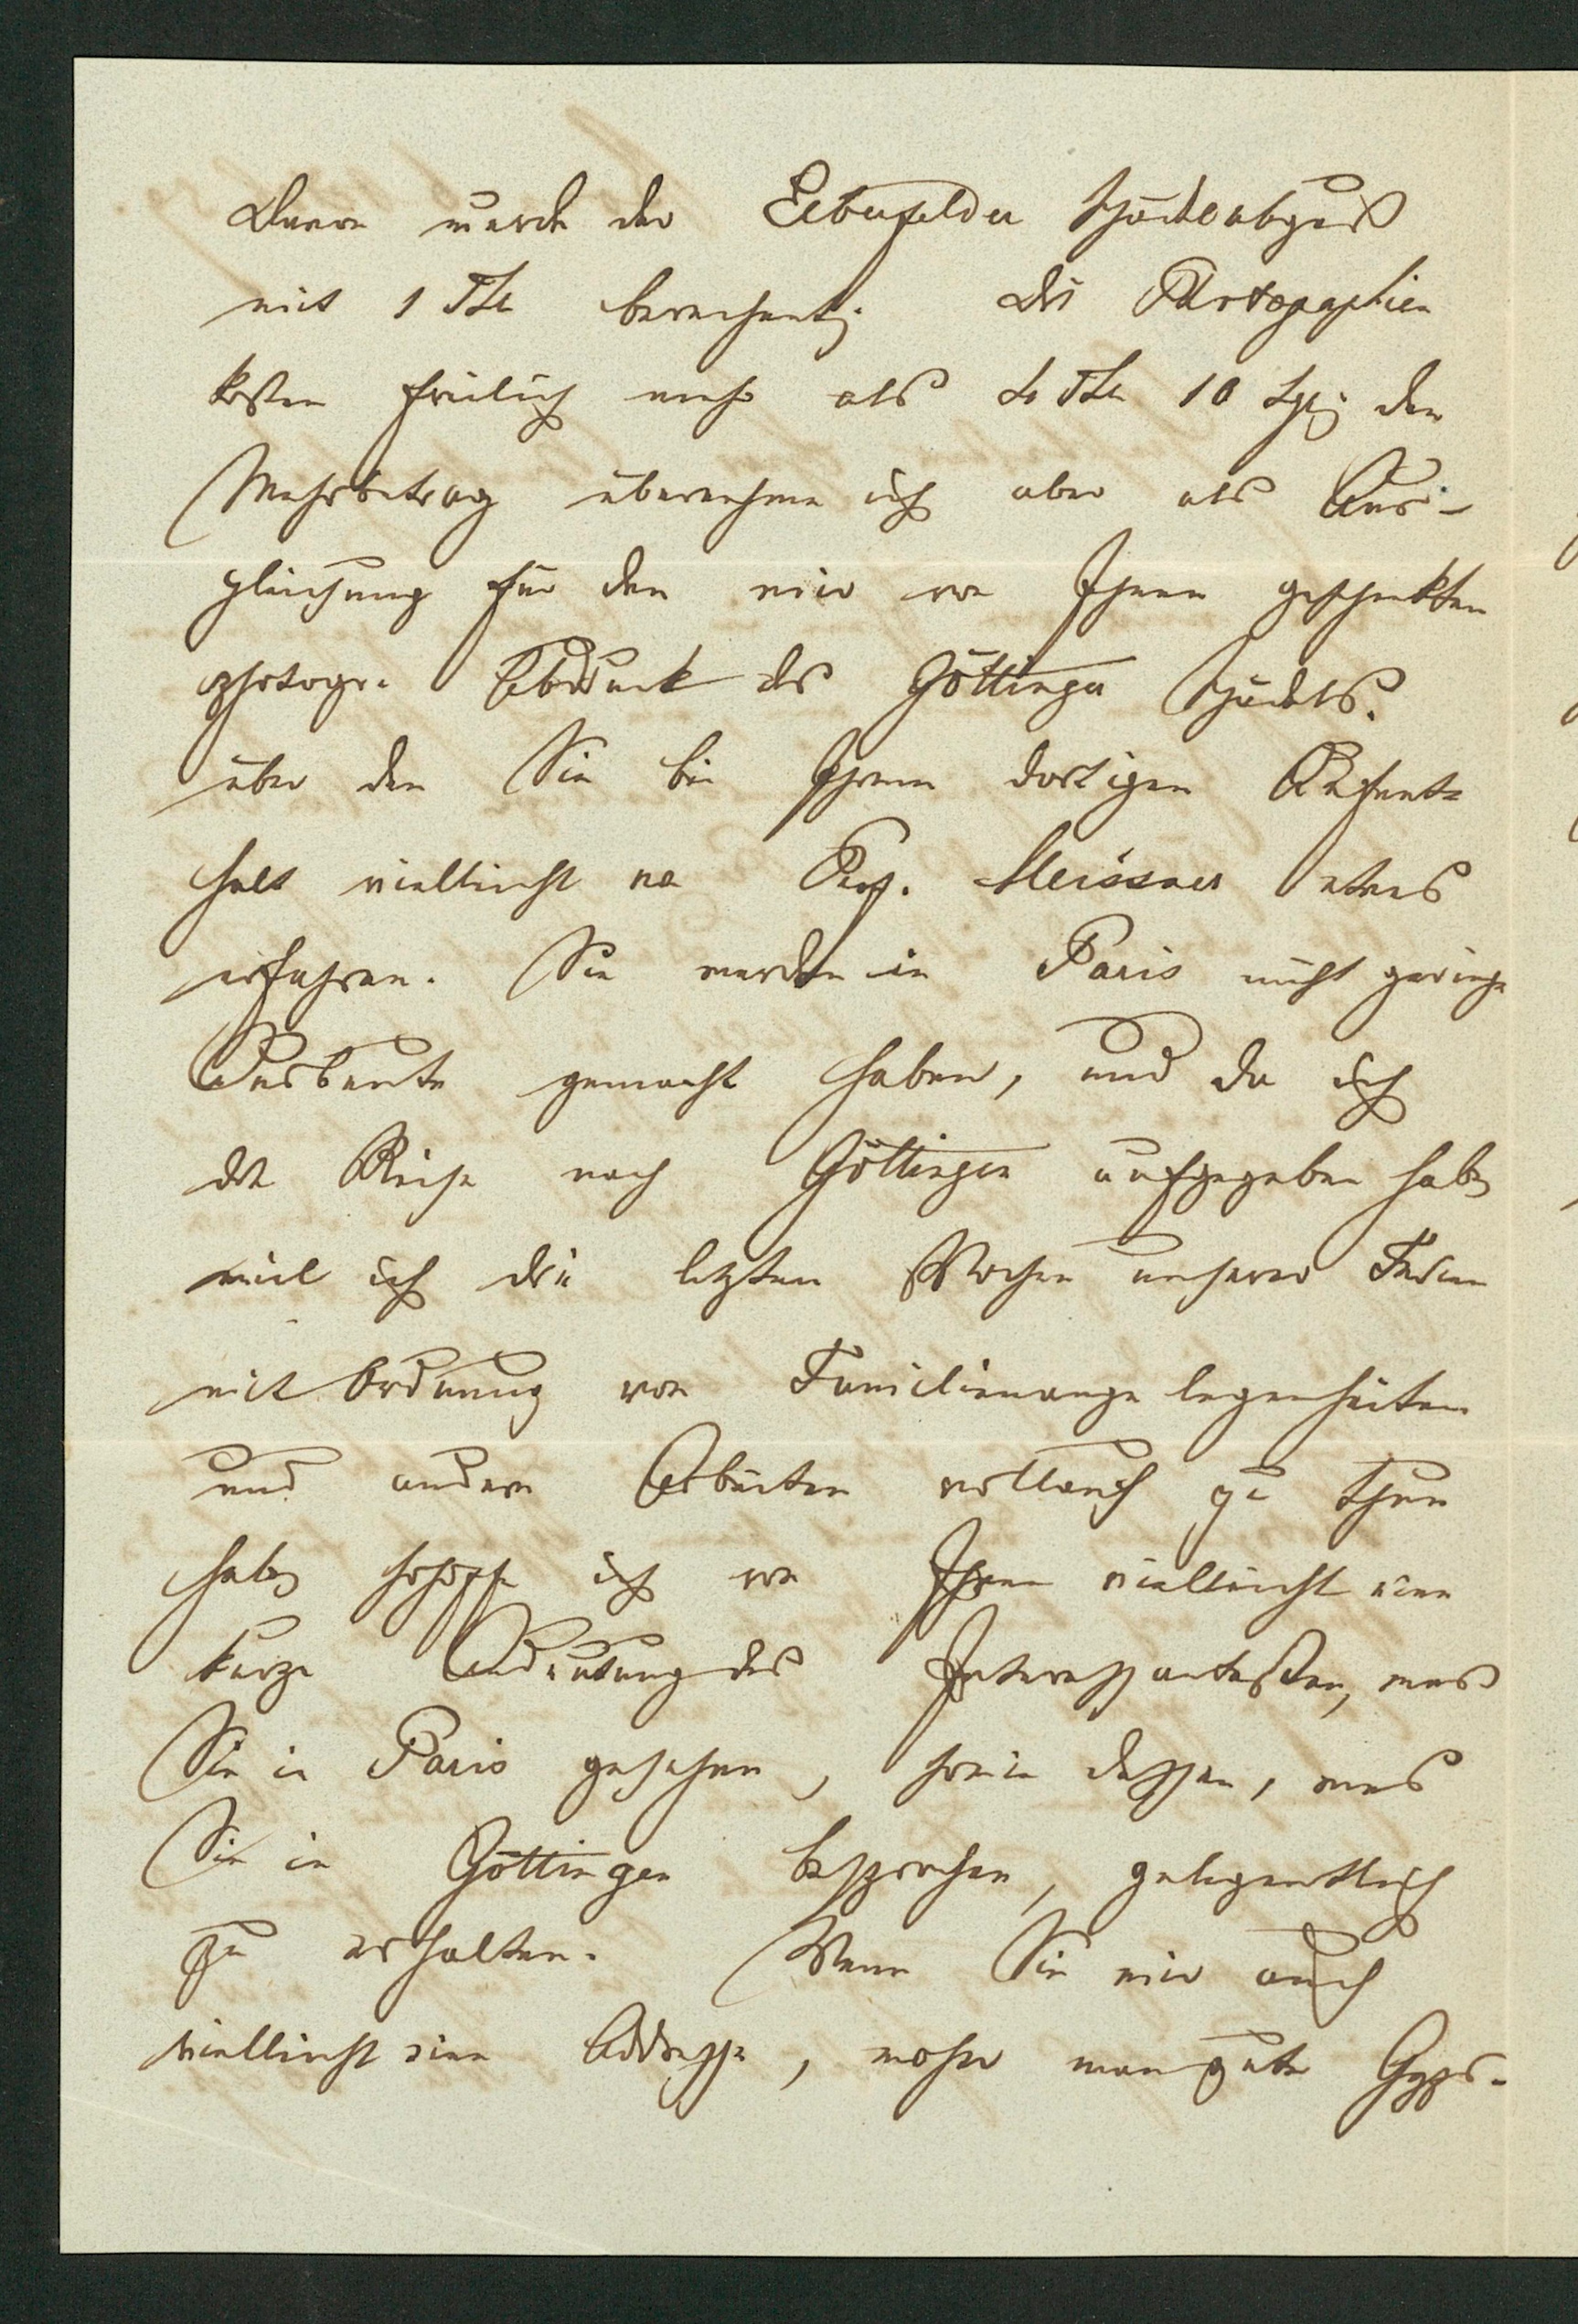 Davon wurde der Elberfelder Schädelabguß
mit 1 Th berechnet; die Photographien
kosten freilich mehr als 4 Th 10 Sgr; den
Mehrbetrag übernehme ich aber als Aus-
gleichung für den mir von Ihnen geschenkten
photogr. Abdruck des Göttinger Schädels,
über den Sie bei Ihrem dortigen Aufent-
halt vielleicht von Prof. Meissner etwas
erfahren. Sie werden in Paris nicht geringe
Ausbeute gemacht haben, und da ich
die Reise nach Göttingen aufgegeben habe,
weil ich die letzten Wochen unserer Ferien
mit Ordnung von Familienangelegenheiten
und andern Arbeiten vollauf zu thun
habe, so hoffe ich von Ihnen vielleicht eine
kurze Andeutung des Interessantesten, was
Sie in Paris gesehen, sowie dessen, was
Sie in Göttingen besprochen, gelegentlich
zu erhalten. Wenn Sie mir auch
vielleicht eine Addresse, woher man gute Gyps-